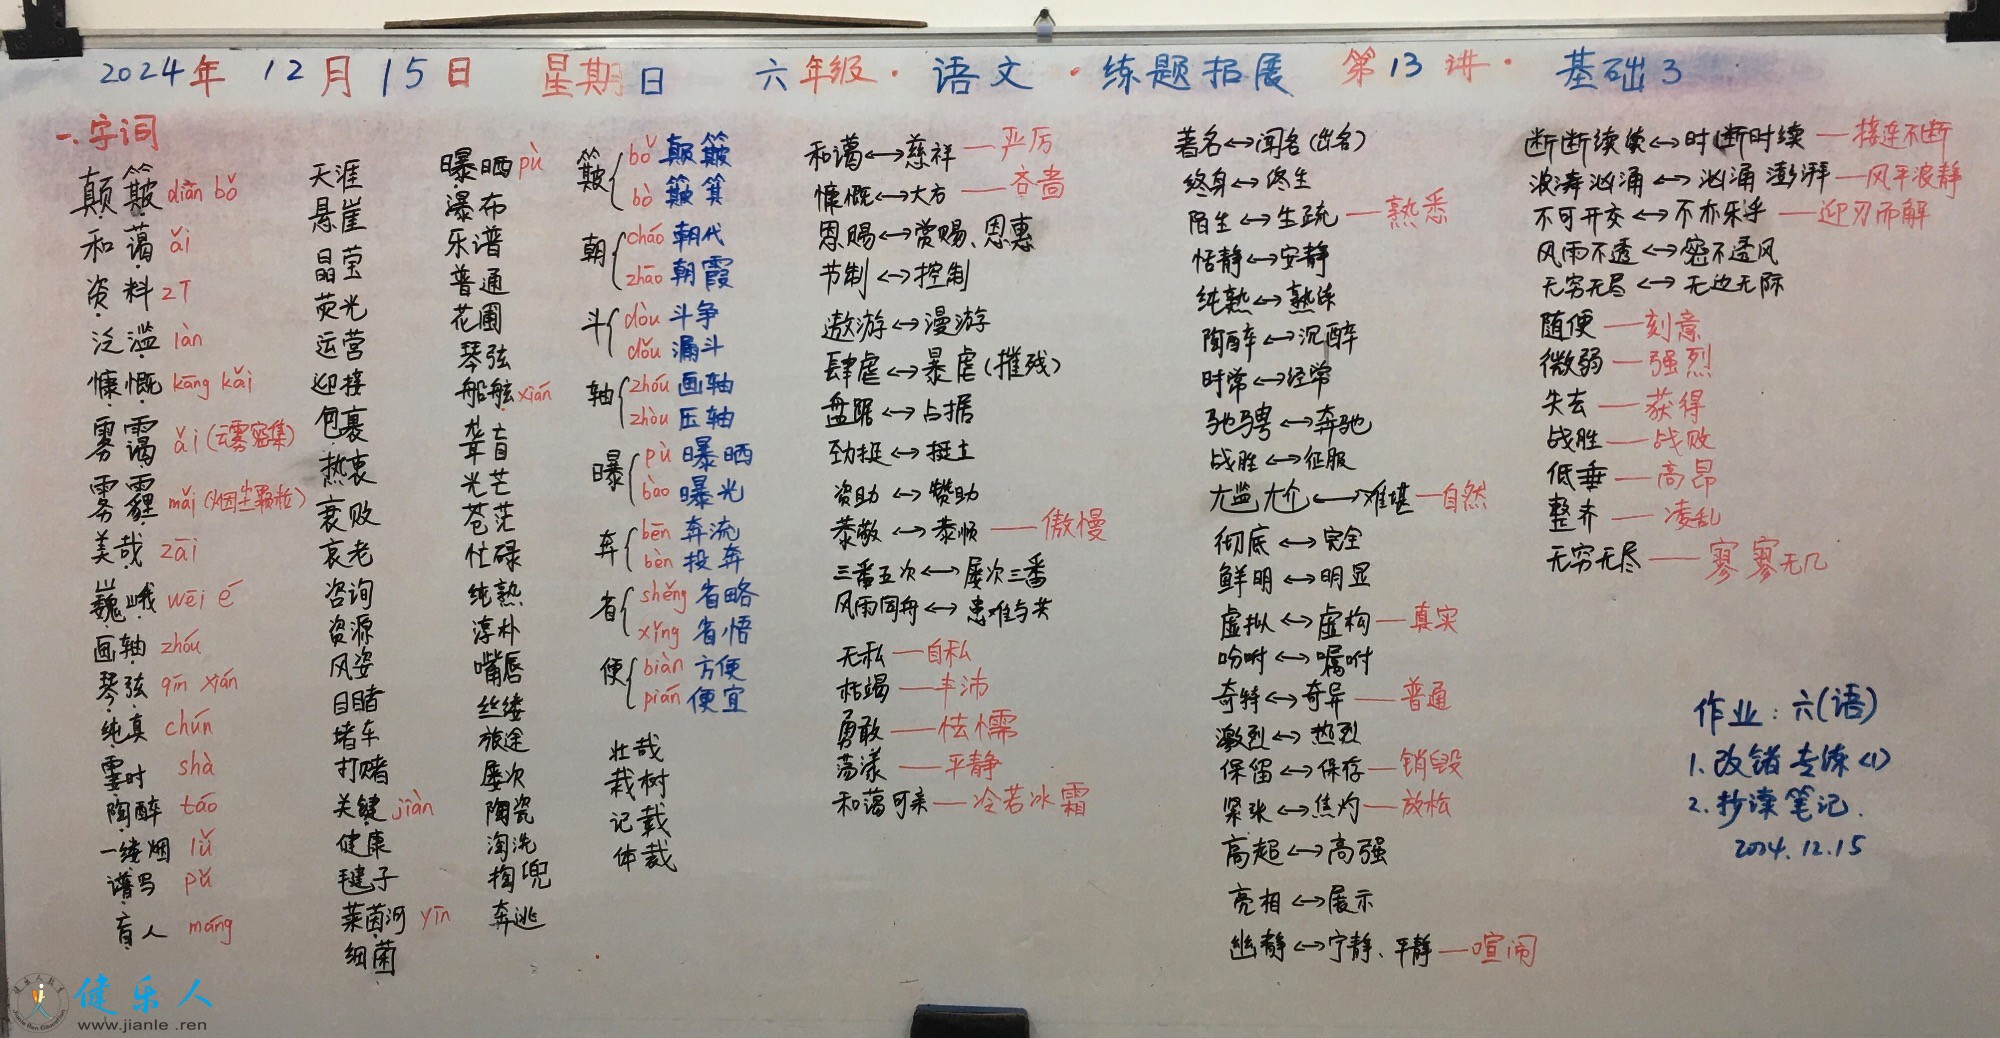 2024年 12月15日 星期日 六年级·语文·练题拓展 第13讲·基础3
一、字词
颠簸 diān bǒ
和蔼 ǎi
资料 zī
泛滥 làn
慷慨 kāng kǎi
雾霭 ǎi(云雾密集)
雾霾 mǎi(烟尘颗粒)
美哉 zāi
巍峨 wēi é
画轴 zhóu
琴弦 qín xián
纯真 chún
霎时 shà
陶醉 táo
一缕烟 lǚ
谱写 pǔ
盲人 máng
天涯
悬崖
晶莹
荧光
运营
迎接
包裹
热衷
衰败
衰老
咨询
资源
风姿
目睹
堵车
打赌
关键 jiàn
健康
毽子
莱茵河 yīn
细菌
曝晒 pù
瀑布
乐谱
普通
花圃
琴弦
船舷 xián
聋盲
光芒
苍茫
忙碌
纯熟
淳朴
嘴唇
丝缕
旅途
屡次
陶瓷
淘洗
掏兜
奔逃
簸{bǒ 颠簸
bò 簸箕
朝{cháo 朝代
zhāo 朝霞
斗{dòu 斗争
dǒu 漏斗
轴{zhóu 画轴
zhòu 压轴
曝{pù 曝晒
bào 曝光
奔{bēn 奔流
bèn 投奔
省{shěng 省略
xǐng 省悟
便{biàn 方便
pián 便宜
壮哉
栽树
记载
体裁
和蔼↔慈祥—严厉
慷慨↔大方—吝啬
恩赐↔赏赐、恩惠
节制↔控制
遨游↔漫游
肆虐↔暴虐(摧残)
盘踞↔占据
劲挺↔挺立
资助↔赞助
恭敬↔恭顺—傲慢
三番五次↔屡次三番
风雨同舟↔患难与共
无私—自私
枯竭—丰沛
勇敢—怯懦
荡漾—平静
和蔼可亲—冷若冰霜
著名↔闻名(出名)
终身↔终生
陌生↔生疏—熟悉
恬静↔安静
纯熟↔熟练
陶醉↔沉醉
时常↔经常
驰骋↔奔驰
战胜↔征服
尴尬↔难堪—自然
彻底↔完全
鲜明↔明显
虚拟↔虚构—真实
吩咐↔嘱咐
奇特↔奇异—普通
激烈↔热烈
保留↔保存—销毁
紧张↔焦灼—放松
高超↔高强
亮相↔展示
幽静↔宁静、平静—喧闹
断断续续↔时断时续—接连不断
波涛汹涌↔汹涌澎湃—风平浪静
不可开交↔不亦乐乎—迎刃而解
风雨不透↔密不透风
无穷无尽↔无边无际
随便—刻意
微弱—强烈
失去—获得
战胜—战败
低垂—高昂
整齐—凌乱
无穷无尽—寥寥无几
作业:六(语)
1.改错专练<1>
2.抄读笔记.
2024.12.15
健乐人
www.jianle.ren